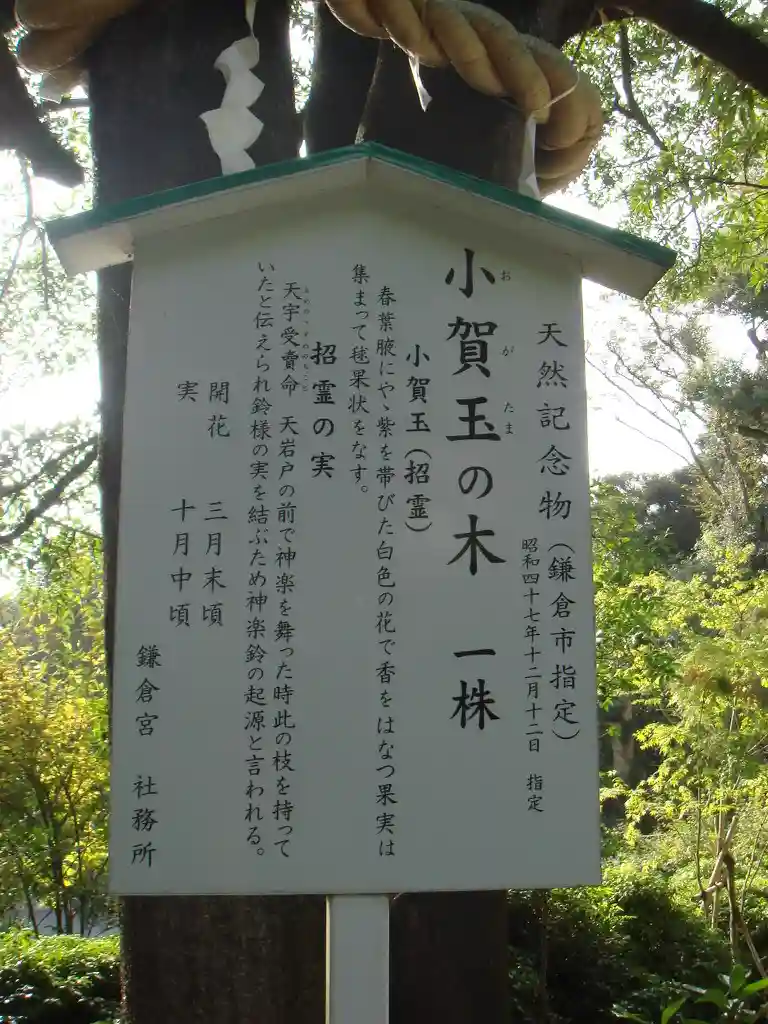 天然記念物(鎌倉市指定)
昭和四十七年十二月十二日 指定
小賀玉の木 一株
おがたま
小賀玉(招霊)
春葉腋にやゝ紫を帯びた白色の花で香をはなつ果実は
集まって毬果状をなす。
招霊の実
天宇受賣命 天岩戸の前で神楽を舞った時此の枝を持って
あめのうずめのみこと
いたと伝えられ鈴様の実を結ぶため神楽鈴の起源と言われる。
開花 三月末頃
実 十月中頃
鎌倉宮 社務所